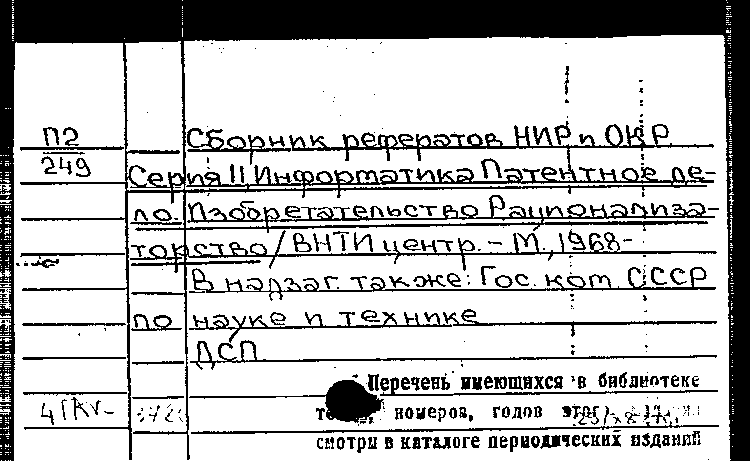 П2
249
Сборник рефератов НИР и ОКР
Серия 11, Информатика Патентное де-
ло. Изобретательство Рационализа-
торство / ВНТИ центр. - М, 1968-
В надзаг. также: Гос. ком. СССР
по науке и технике
ДСП
Перечень имеющихся в библиотеке
номеров, годов
смотри в каталоге периодических изданий